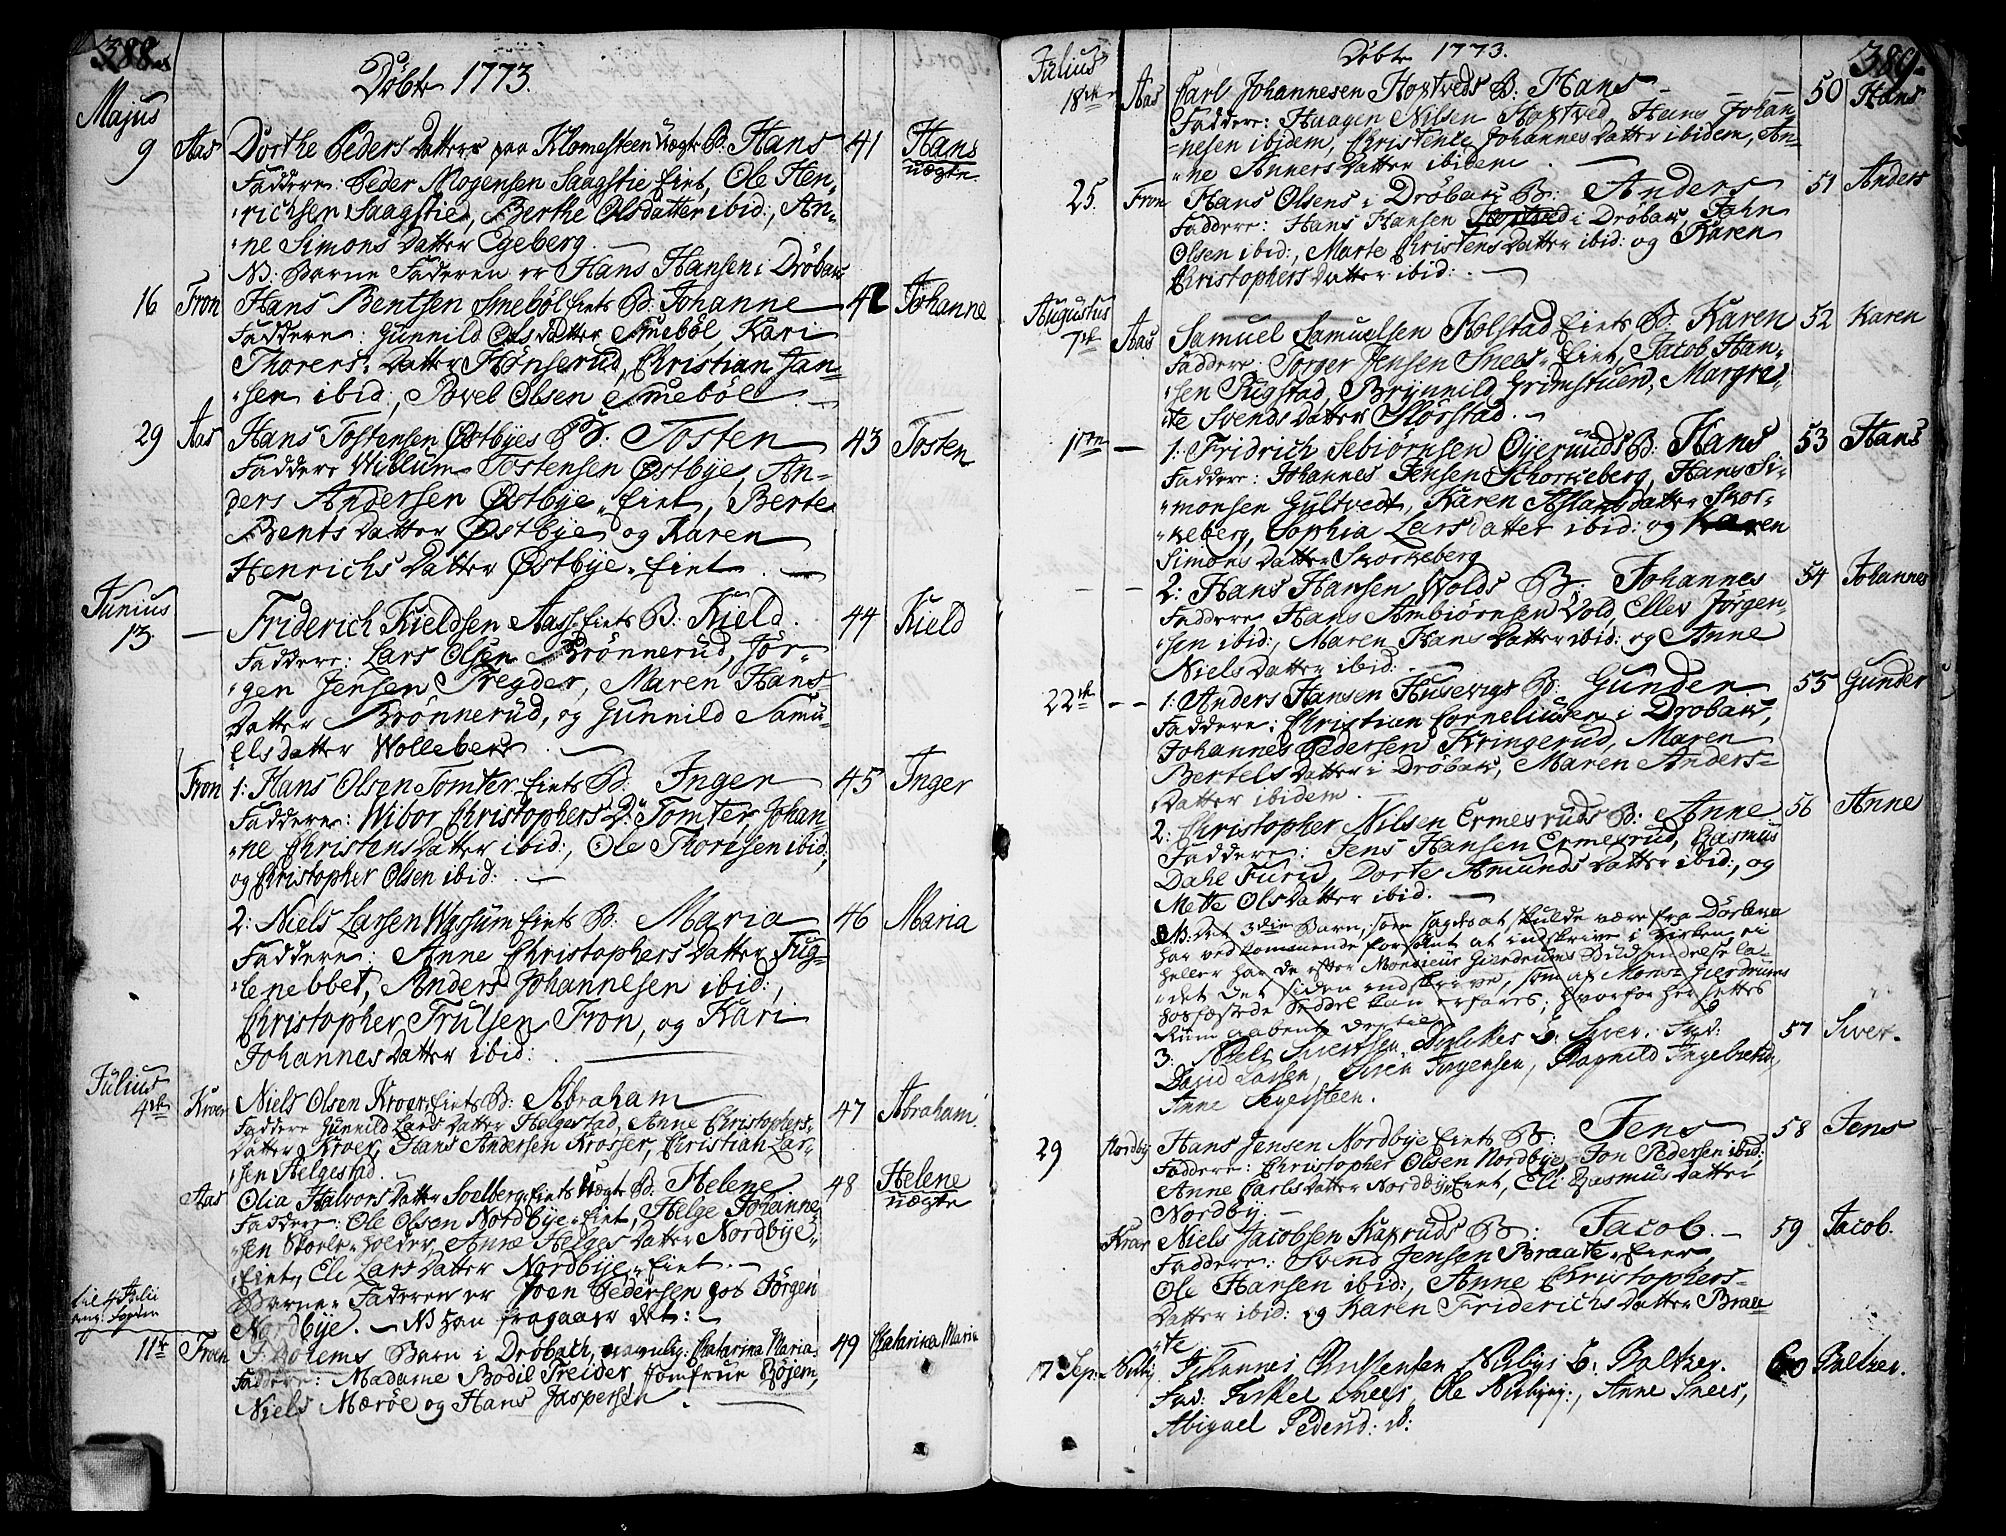 388
Döbte 1773.
Majus
9 Aas Dorthe Peders Datters paa Klomesteen Uægte B: Hans 41 Hans
uægte.
Faddere: Peder Mogensen Saagstie Eiet, Ole Hen-
richsen Saagstie, Berthe Olsdatter ibid:, An-
ne Simons Datter Egeberg.
NB: Barne Faderen er Hans Hansen i Dröbak
16 Fron Hans Bentsen Smeböl Eiets B: Johanne 42 Johanne
Faddere: Gunnild Ols Datter Smeböl, Kari
Thorers Datter Hönserud, Christian Jan-
sen ibid:, Povel Olsen Smeböl
29 Aas Hans Tostensen Östbyes B: Tosten 43 Tosten
Faddere Willum Tostensen Östbye, An-
ders Andersen Östbye-Eiet, Berte
Bents Datter Östbye og Karen
Henrichs Datter Östbye-Eiet.
Junius
13. — Friderich Kieldsen Aas-Eiets B: Kield. 44 Kield
Faddere: Lars Olsen Brönnerud, Jör-
gen Jensen Tregder, Maren Hans-
Datter Brönnerud, og Gunnild Samu-
elsdatter Wolleberg.
Fron 1: Hans Olsen Tomter-Eiets B: Inger 45 Inger
Faddere: Wibor Christophers D: Tomter, Johan-
ne Christens Datter ibid:, Ole Thorisen ibid:,
og Christopher Olsen ibid:
2: Niels Larsen Eiets B: Maria 46 Maria
Faddere: Anne Christophers Datter Fug-
lenebbet, Anders Johannesen ibid:,
Christopher Trulsen Fron, og Kari
Johannes Datter ibid:
Julius
4de Kroer Niels Olsen Kroer-Eiets B: Abraham 47 Abraham.
Faddere Gunnild Lars Datter Helgestad, Anne Christophers-
Datter Kroer, Hans Andersen Krosser, Christian Lar-
sen Helgestad.
Aas Olia Halvors Datter Soelberg-Eiets Uægte B: Helene 48 Helene
uægte
Faddere: Ole Olsen Nordbye-Eiet, Helge Johanne-
sen Skoele-holder, Anne Helges Datter Nordbye-
Eiet, Eli Lars Datter Nordbye-Eiet.
Barne-Faderen er Joen Pedersen hos Jörgen
Nordbye. — NB han fragaaer det:
til 4 Julii
11te Froen Böjems Barn i Dröbach, navnlig: Catarina Maria. 49 Catarina Maria
Faddere: Madame Bodil Treider, Jomfrue Böjem,
Niels Mæröe og Hans Jaspersen.
389.
Döbte 1773.
Julius
18de Aas Carl Johannesen Hoxtveds B: Hans 50 Hans
Faddere: Haagen Nilsen Hoxtved, Hans Johan-
nesen ibidem, Christenle Johannes Datter ibidem, An-
ne Anners Datter ibidem.
25. Fron Hans Olsens i Dröbak B: Anders 51 Anders
Faddere: Hans Hansen i Dröbak, Jahn
Olsen ibid:, Marte Christens Datter ibid: og Karen
Christophers Datter ibid:
Augustus
7de Aas Samuel Samuelsen Holstad Eiets B: Karen 52 Karen
Faddere: Torger Jensen Snees-Eiet, Jacob Han-
sen Rugstad, Brynnild Grimstuen, Margre-
te Svends Datter Storstad.
— 1: Fridrich Sebiörnsen Öyeruuds B: Hans 53 Hans
Faddere: Johannes Jensen Skorkeberg, Hans Si-
monsen Gyltvedt, Karen Aslaks Datter Skor-
keberg, Sophia Larsdatter ibid: og Karen
Simons Datter Skorkeberg
— — 2: Hans Hansen Wolds B: Johannes 54 Johannes
Faddere Hans Ambiörnsen Vold, Ellev Jörgen-
sen ibid:, Maren Hans Datter ibid: og Anne
Niels Datter ibid:
22de — — 1: Anders Hansen Husevigs B: Gunder 55 Gunder
Faddere: Christian Corneliusen i Dröbak,
Johannes Pedersen Kringerud, Maren
Bertels Datter i Dröbak, Maren Anders-
Datter ibidem.
2: Christopher Nilsen Ermesruds B: Anne 56 Anne
Faddere: Jens Hansen Ermesrud, Rasmus
Dahl Furu, Dorte Amunds Datter ibid:, og
Mette Ols Datter ibid:
NB: Det 3die Barn, som sagdes at skulde være fra Döebak
har vedkommende forsömt at indskrive i Kirken, ei
heller har de efter Monsieur Gierdrums Budsendelse la-
det det siden indskrive, som af Monsr Gierdrums
hosfæstede Seddel kan erfares; hvorfor her settes
Rum aabent dertil
3: Niels Sivertsen B. Siver. 57 Siver.
David Larsen, Siren Jörgensen, Ragnild Ingebretsd,
Anne Segelsteen.
29 Nordby Hans Jensen Nordbye Eiets B: Jens 58 Jens
Faddere: Christopher Olsen Nordbye, Jon Pedersen ibid:
Anne Carls Datter Nordbye Eiet, Eli Rasmus Datter
Nordby.
Kroer Niels Jacobsen Kaxruds B: Jacob. 59 Jacob.
Faddere: Svend Jensen Braate-Eier
Ole Hansen ibid:, Anne Christophers-
Datter ibid: og Karen Friderichs Datter Braa-
te
7 Sep: Johannes Christensen Nisbys B. Baltzer. 60 Baltzer.
Fad: Terkel Snees, Ole Nisby:, Anne Snees,
Abigael Peders d: